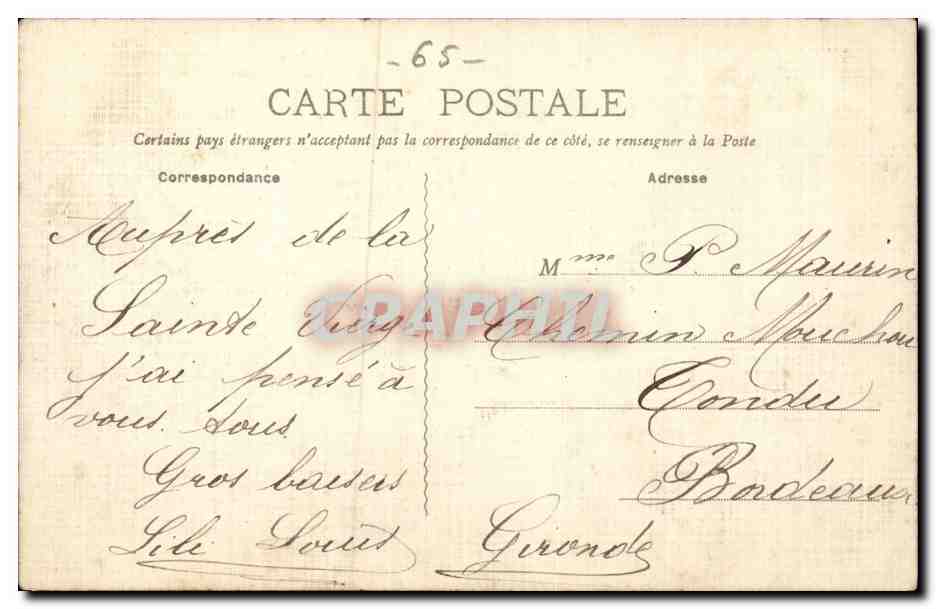 - 65 -
CARTE POSTALE
Certains pays étrangers n'acceptant pas la correspondance de ce côté, se renseigner à la Poste
Correspondance
Auprès de la
Sainte Vierge
j'ai pensé à
vous tous.
Gros baisers
Lili Louis
Adresse
Mme P. Maurin
Chemin Mouchou
Tondu
Bordeaux
Gironde
CPAPHIL